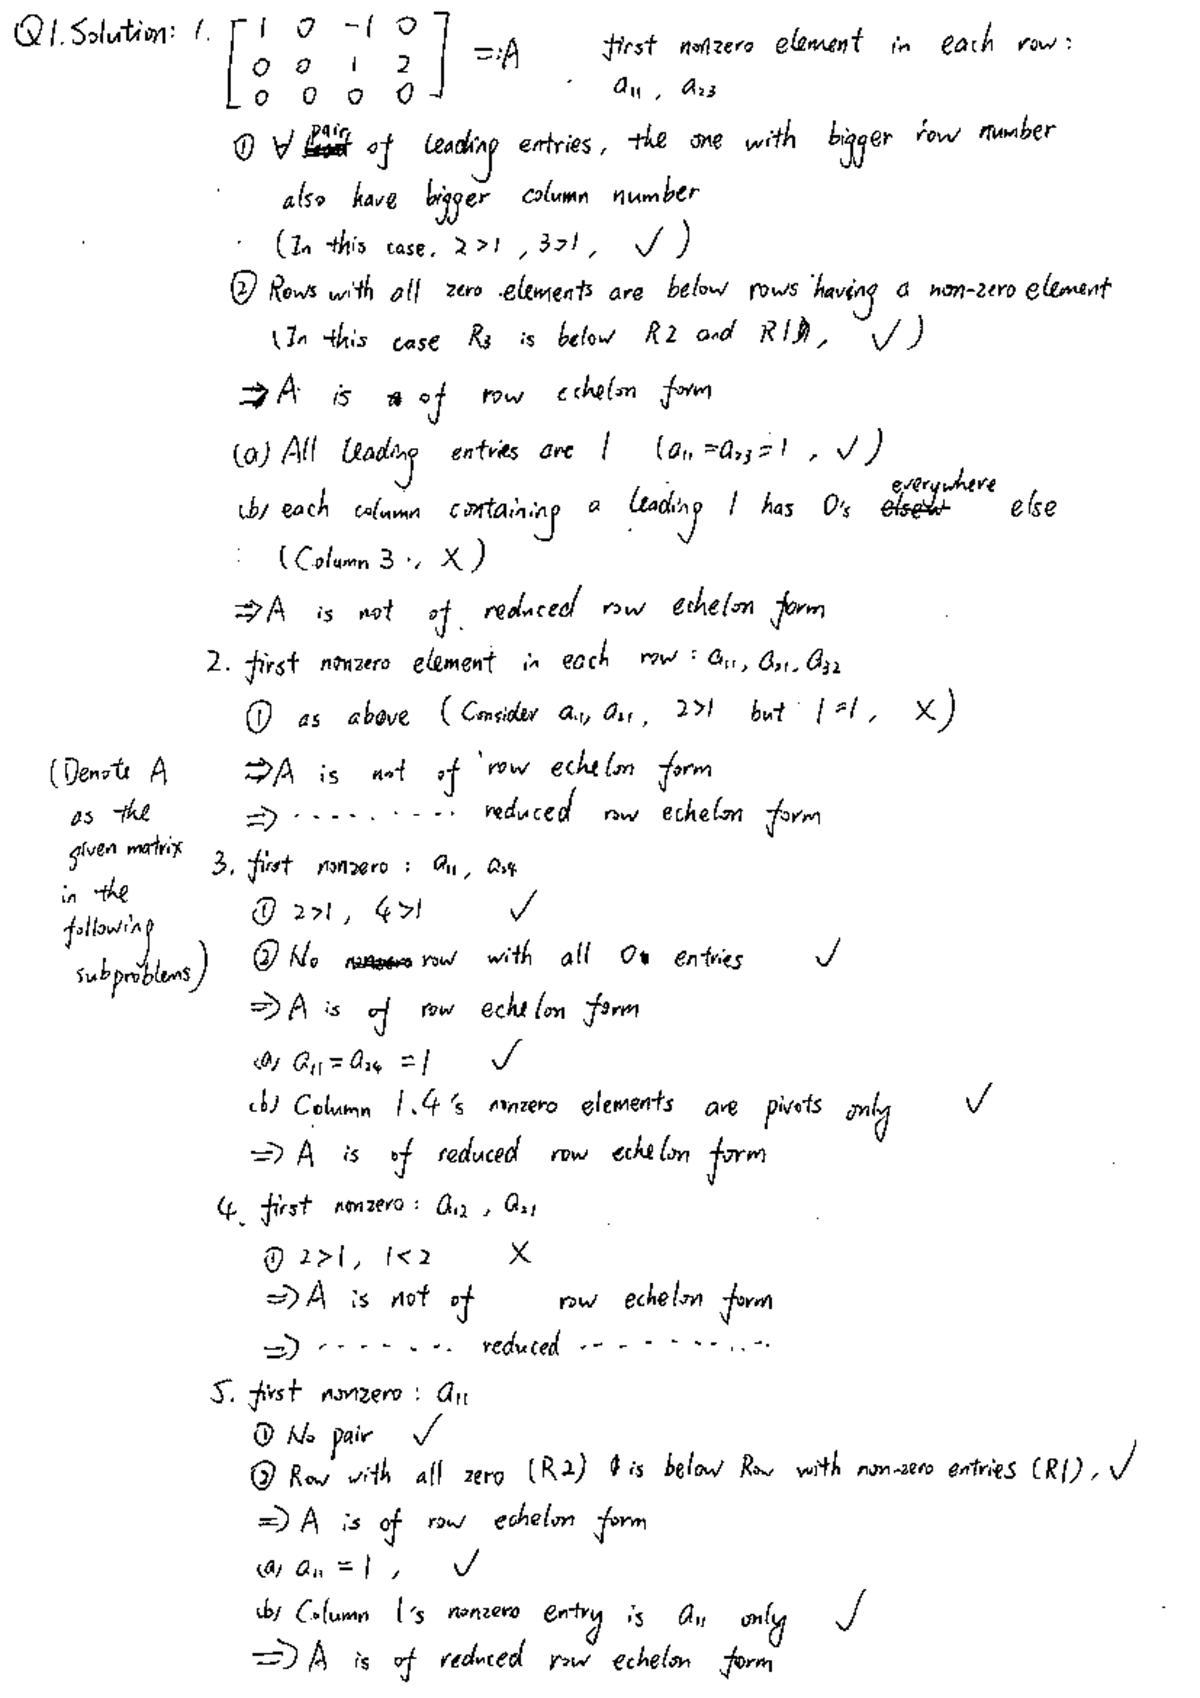 Q1. Solution: 1. [ 1 0 -1 0 ; 0 0 1 2 ; 0 0 0 0 ] =: A first nonzero element in each row:
a₁₁, a₂₃
① ∀ pair of leading entries, the one with bigger row number
also have bigger column number
(In this case, 2>1, 3>1, ✓)
② Rows with all zero elements are below rows having a non-zero element
(In this case R3 is below R2 and R1, ✓)
⇒ A is of row echelon form
(a) All leading entries are 1 (a₁₁=a₂₃=1, ✓)
(b) each column containing a leading 1 has 0's everywhere else
(Column 3, X)
⇒ A is not of reduced row echelon form
2. first nonzero element in each row: a₁₁, a₂₁, a₃₂
① as above (Consider a₁₁, a₂₁, 2>1 but 1=1, X)
⇒ A is not of row echelon form
⇒ ·········· reduced row echelon form
(Denote A
as the
given matrix
in the
following
subproblems)
3. first nonzero: a₁₁, a₂₄
① 2>1, 4>1 ✓
② No row with all 0 entries ✓
⇒ A is of row echelon form
(a) a₁₁=a₂₄=1 ✓
(b) Column 1.4's nonzero elements are pivots only ✓
⇒ A is of reduced row echelon form
4. first nonzero: a₁₂, a₂₁
① 2>1, 1<2 X
⇒ A is not of row echelon form
⇒ ······· reduced ··········
5. first nonzero: a₁₁
① No pair ✓
② Row with all zero (R2) is below Row with non-zero entries (R1), ✓
⇒ A is of row echelon form
(a) a₁₁ = 1, ✓
(b) Column 1's nonzero entry is a₁₁ only ✓
⇒ A is of reduced row echelon form